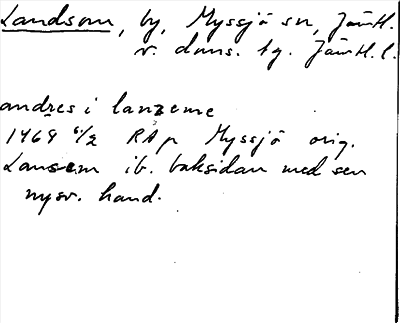 Landsom, by, Myssjö sn, Jämtl.
v. doms. bg. Jämtl. l.
andres i lanzeme
1469 6/2 RA p Myssjö orig.
Lansem ib. baksidan med sen
nysv. hand.